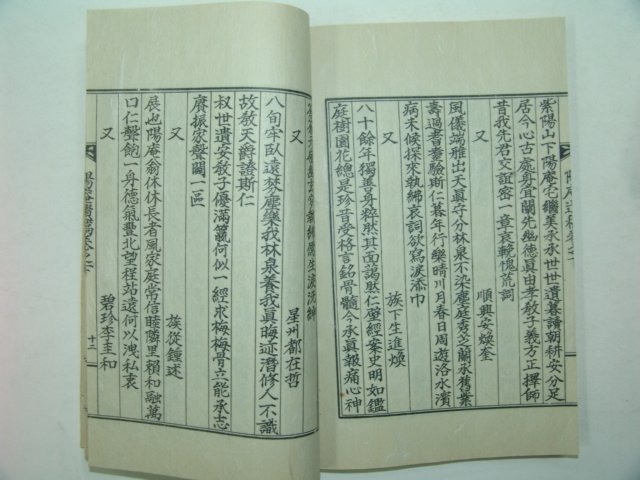 紫陽山下陽庵宅纘美永承世世遺暮讀朝耕安分足
居今心古處身宜蘭先幽德眞由孝敎子義方正擇師
昔我先君交誼密一章哀輓愧荒詞
又 順興安煥奎
風儀端雅出天眞守分林泉不染塵庭秀芝蘭承舊業
壽過耆耋驗斯仁暮年行樂晴川月春日周遊洛水濱
病未候探來執紼哀詞欲寫淚添巾
又 族下生進煥
八十餘年獨善身粹然其面謁然仁螢經案史明如鑑
庭樹園花總是珍昔受格言銘骨髓今承眞報痛心神
又 星州都在哲
八旬牢臥遠埜塵樂我林泉養我眞晦迹潛修人不識
故敎天爵證斯仁
叔世遺安敎子優滿籯何似一經求梅梅骨立能承志
賡振家聲聞一區
又 族從鍾述
展也陽庵翁休休長者風家庭常信睦隣里賴和融萬
口仁聲飽一身德氣豊北望程站遠何以洩私衷
又 碧珍李圭和
十二